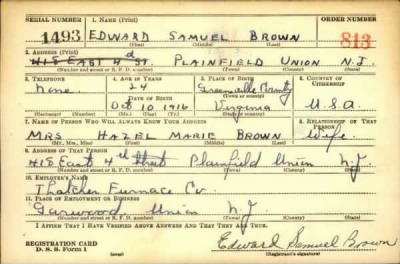 SERIAL NUMBER 1. NAME (Print) ORDER NUMBER
1493 EDWARD SAMUEL BROWN 813
(First) (Middle) (Last)
2. ADDRESS (Print)
415 EAST 4th ST. PLAINFIELD UNION N.J.
(Number and street or R. F. D. number) (Town) (County) (State)
3. TELEPHONE 4. AGE IN YEARS 5. PLACE OF BIRTH 6. COUNTRY OF CITIZENSHIP
None. 24 Greenville County
DATE OF BIRTH (Town or county)
Oct 10 1916 Virginia U.S.A
(Exchange) (Number) (Mo.) (Day) (Yr.) (State or country)
7. NAME OF PERSON WHO WILL ALWAYS KNOW YOUR ADDRESS 8. RELATIONSHIP OF THAT PERSON
MRS HAZEL MARIE BROWN Wife.
(Mr., Mrs., Miss) (First) (Middle) (Last)
9. ADDRESS OF THAT PERSON
415 East 4th Street Plainfield Union N.J
(Number and street or R. F. D. number) (Town) (County) (State)
10. EMPLOYER'S NAME
Thatcher Furnace Co.
11. PLACE OF EMPLOYMENT OR BUSINESS
Garwood Union N.J.
(Number and street or R. F. D. number) (Town) (County) (State)
I AFFIRM THAT I HAVE VERIFIED ABOVE ANSWERS AND THAT THEY ARE TRUE.
REGISTRATION CARD
D. S. S. Form 1 (over) Edward Samuel Brown
(Registrant's signature)